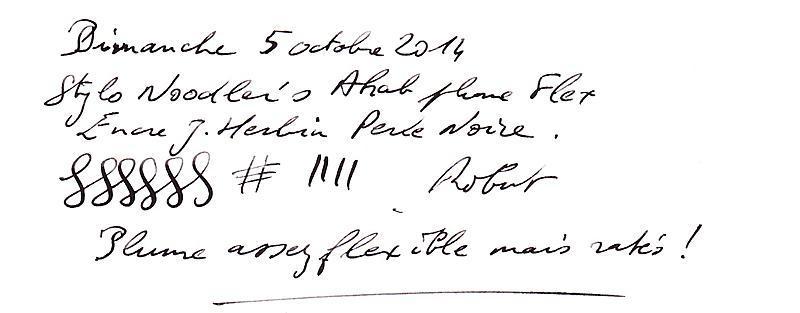 Dimanche 5 octobre 2014
Stylo Noodler's Ahab plume Flex
Encre J. Herbin Perle Noire.
# Robert
Plume assez flexible mais ratés !